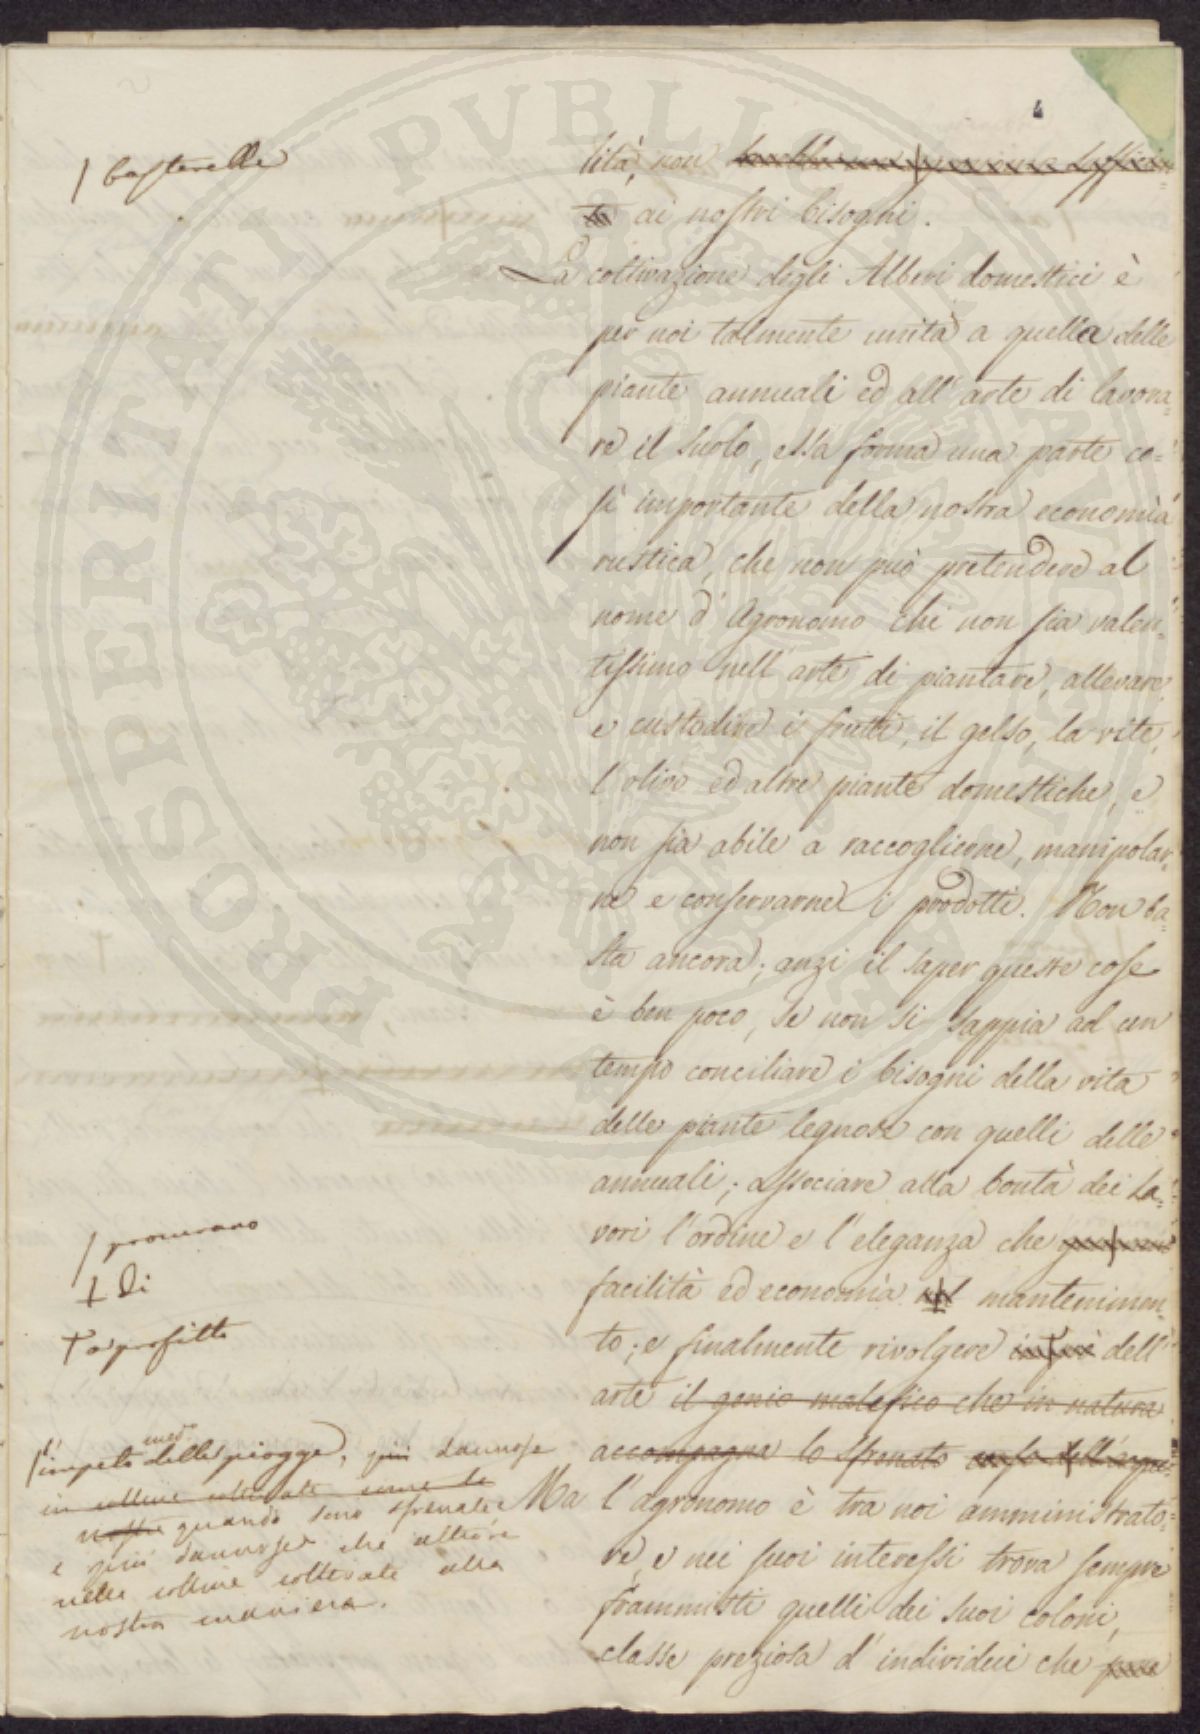 4
/ basterebbe
lità, non
ai nostri bisogni.
La coltivazione degli Alberi domestici è
per noi talmente unita a quella delle
piante annuali ed all' arte di lavora=
re il suolo, essa forma una parte co=
sì importante della nostra economia
rustica, che non può pretendere al
nome d' Agronomo chi non sia valen=
tissimo nell' arte di piantare, allevare,
e custodire i frutti, il gelso, la vite,
l' olivo ed altre piante domestiche, e
non sia abile a raccoglierne, manipolar=
ne e conservarne i prodotti. Non ba=
sta ancora; anzi il saper queste cose
è ben poco, se non si sappia ad un
tempo conciliare i bisogni della vita
delle piante legnose con quelli delle
annuali; associare alla bontà dei la=
vori l' ordine e l' eleganza che
facilità ed economia mantenimen=
to; e finalmente rivolgere dell'
arte il genio malefico che in natura
accompagna lo sfrenato corso dell' acque
Ma l' agronomo è tra noi amministrato=
re, e nei suoi interessi trova sempre
frammisti quelli dei suoi coloni,
classe preziosa d' individui che pure
/ procurano
+ di
T a profitto
l' impeto delle piogge, più dannose
in colline coltivate come le
nostre quando sono sfrenate
e più dannose che altrove
nelle colline coltivate alla
nostra maniera.
PROSPERITATI PUBLICAE AUGENDAE